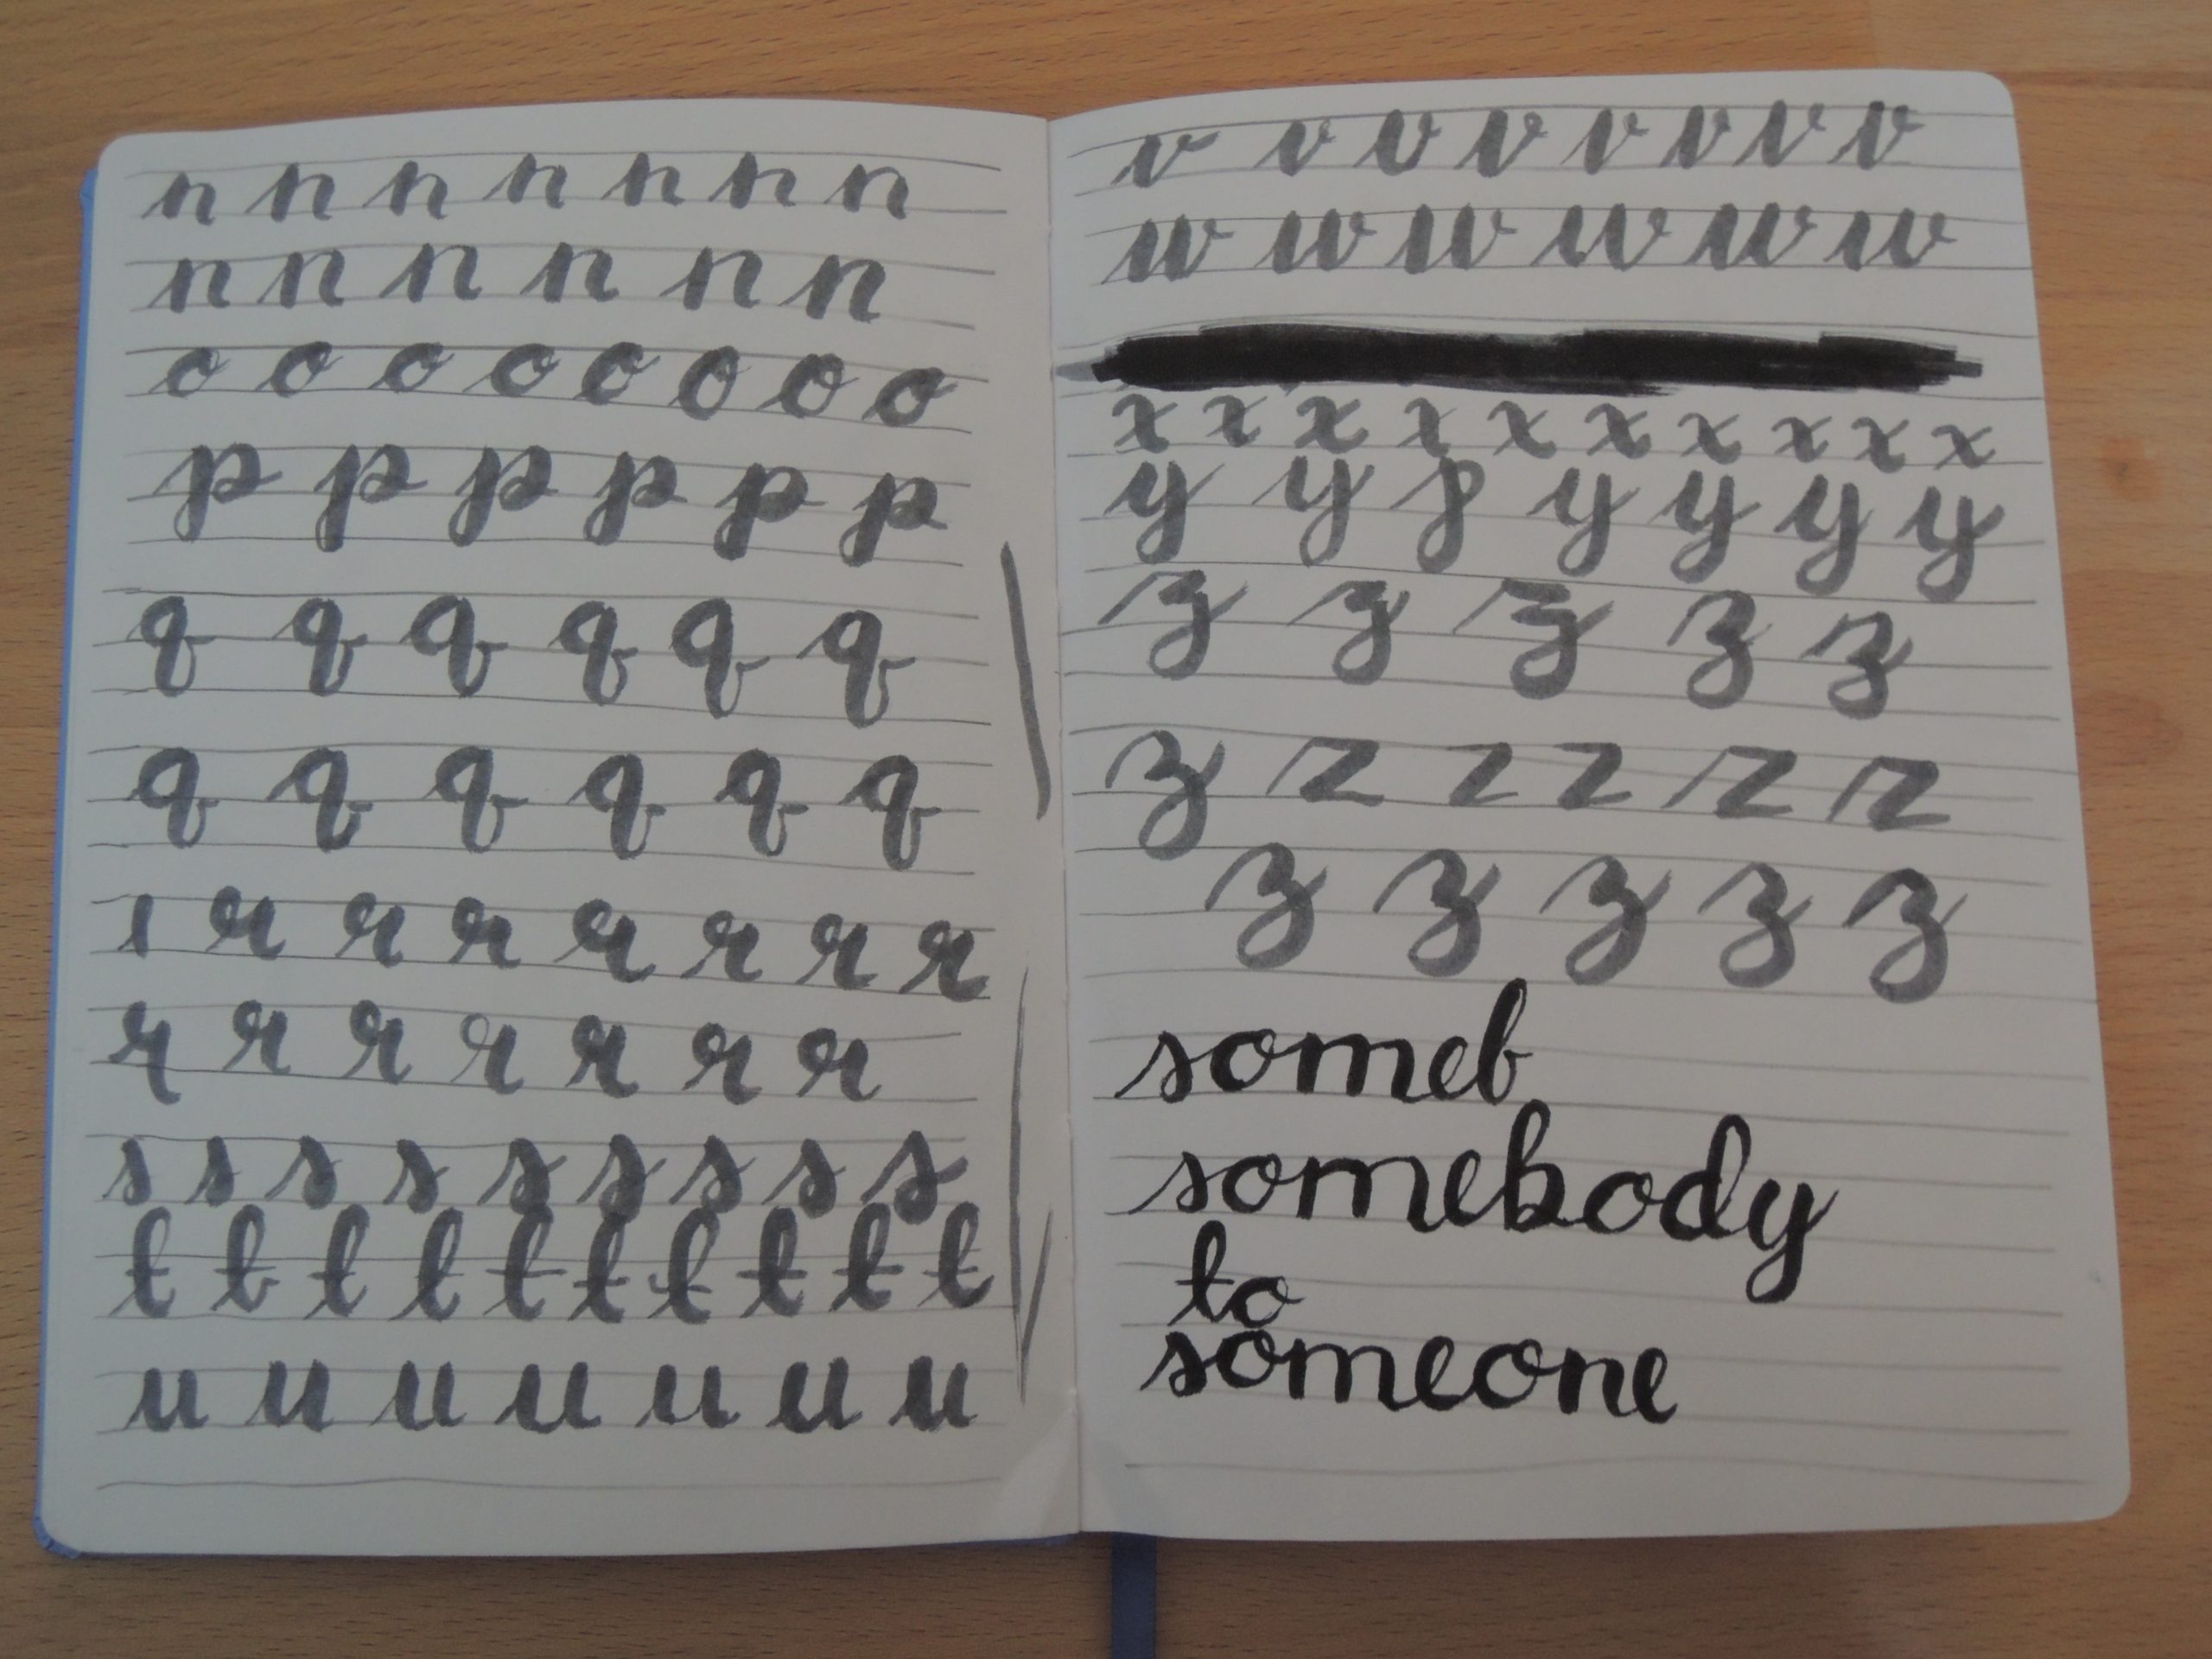 n n n n n n n
n n n n n n
o o o o o o o o
p p p p p p
q q q q q q
q q q q q q
ı r r r r r r r
r r r r r r r
s s s s s s s s s
t t t t t t t t t t
u u u u u u u
v v v v v v v v
w w w w w w
x x x x x x x x x x
y y p y y y y
z z z z z
z z z z z z
z z z z z
someb
somebody
to
someone